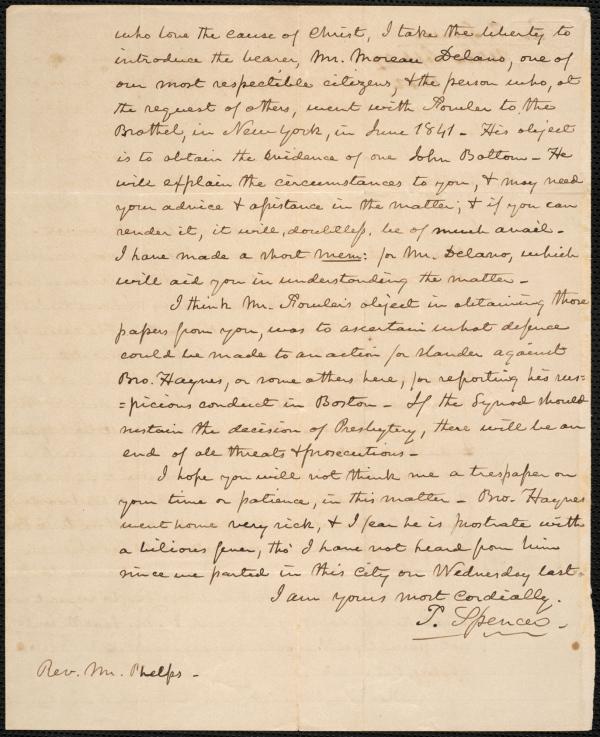 who love the cause of Christ, I take the liberty to
introduce the bearer, Mr. Moreau Delano, one of
our most respectible citizens, & the person who, at
the request of others, went with Fowler to the
Brothel, in New York, in June 1841 - His object
is to obtain the evidence of one John Bolton - He
will explain the circumstances to you, & may need
your advice & assistance in the matter; & if you can
render it, it will, doubtless, be of much avail -
I have made a short mem: for Mr. Delano, which
will aid you in understanding the matter -
I think Mr. Fowler's object in obtaining those
papers from you, was to ascertain what defence
could be made to an action for slander against
Bro. Haynes, or some others here, for reporting his sus=
=picious conduct in Boston - If the Synod should
sustain the decision of Presbytery, there will be an
end of all threats & prosecutions -
I hope you will not think me a trespasser on
your time or patience, in this matter - Bro. Haynes
went home very sick, & I fear he is prostrate with
a bilious fever, tho' I have not heard from him
since we parted in this city on Wednesday last -
I am yours most cordially.
T. Spencer -
Rev. Mr. Phelps -